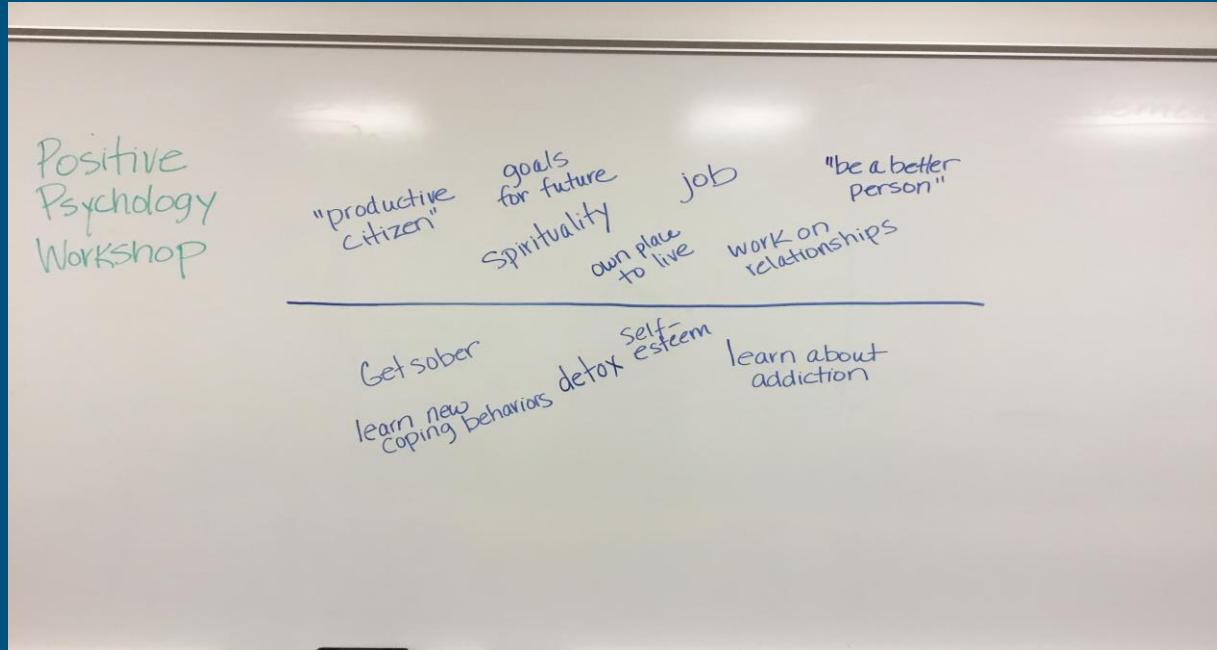 Positive
Psychology
Workshop
"productive
citizen"
goals
for future
Spirituality
job
own place
to live
"be a better
person"
work on
relationships
Get sober
learn new
coping behaviors
detox
self-
esteem
learn about
addiction